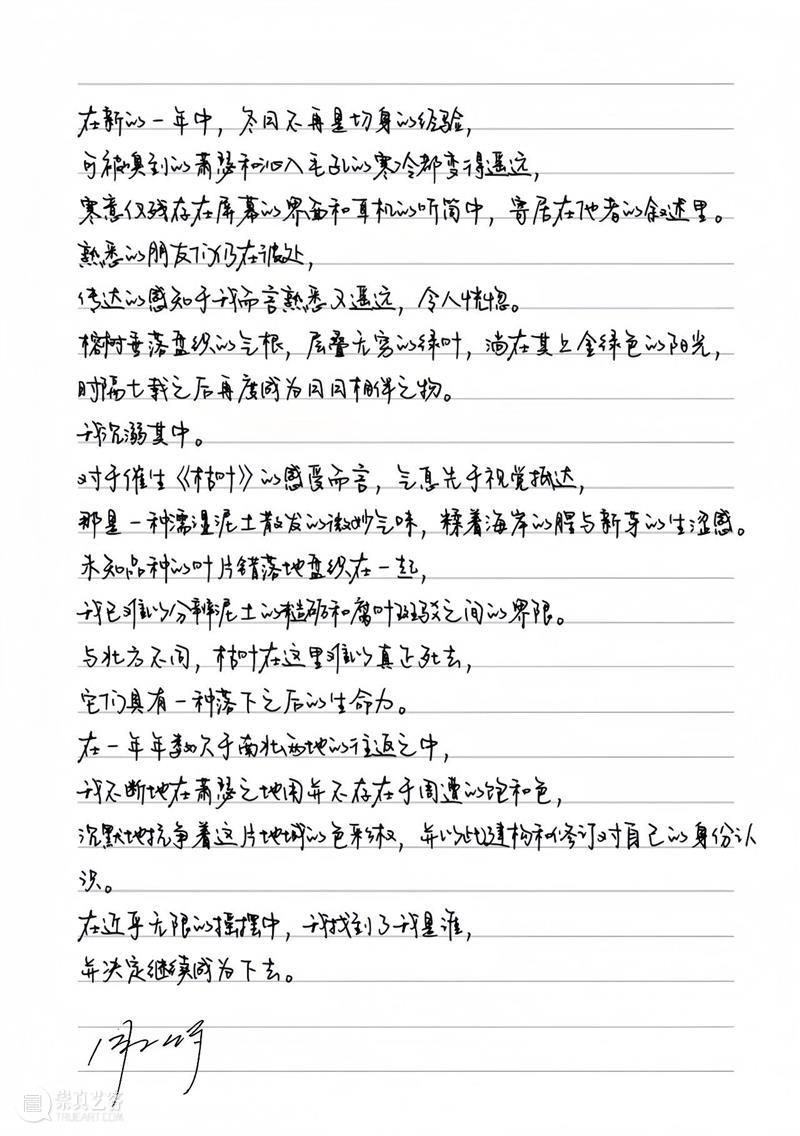 在新的一年中，冬日不再是切身的经验，
可被嗅到的萧瑟和沁入毛孔的寒冷都变得遥远，
寒意仅残存在屏幕的界面和耳机的听筒中，寄居在他者的叙述里。
熟悉的朋友们仍在彼处，
传达的感知于我而言熟悉又遥远，令人恍惚。
榕树垂落盘织的气根，层叠无穷的绿叶，淌在其上金绿色的阳光，
时隔七载之后再度成为日日相伴之物。
我沉溺其中。
对于催生《枯叶》的感受而言，气息先于视觉抵达，
那是一种濡湿泥土散发的微妙气味，糅着海岸的腥与新芽的生涩感。
未知品种的叶片错落地盘织在一起，
我已难以分辨泥土的粗砺和腐叶斑驳之间的界限。
与北方不同，枯叶在这里难以真正死去，
它们具有一种落下之后的生命力。
在一年年数次于南北两地的往返之中，
我不断地在萧瑟之地用并不存在于周遭的饱和色，
沉默地抗争着这片地域的色彩权，并以此建构和修订对自己的身份认
识。
在近乎无限的摇摆中，我找到了我是谁，
并决定继续成为下去。
崇真艺客
TRUEART.COM